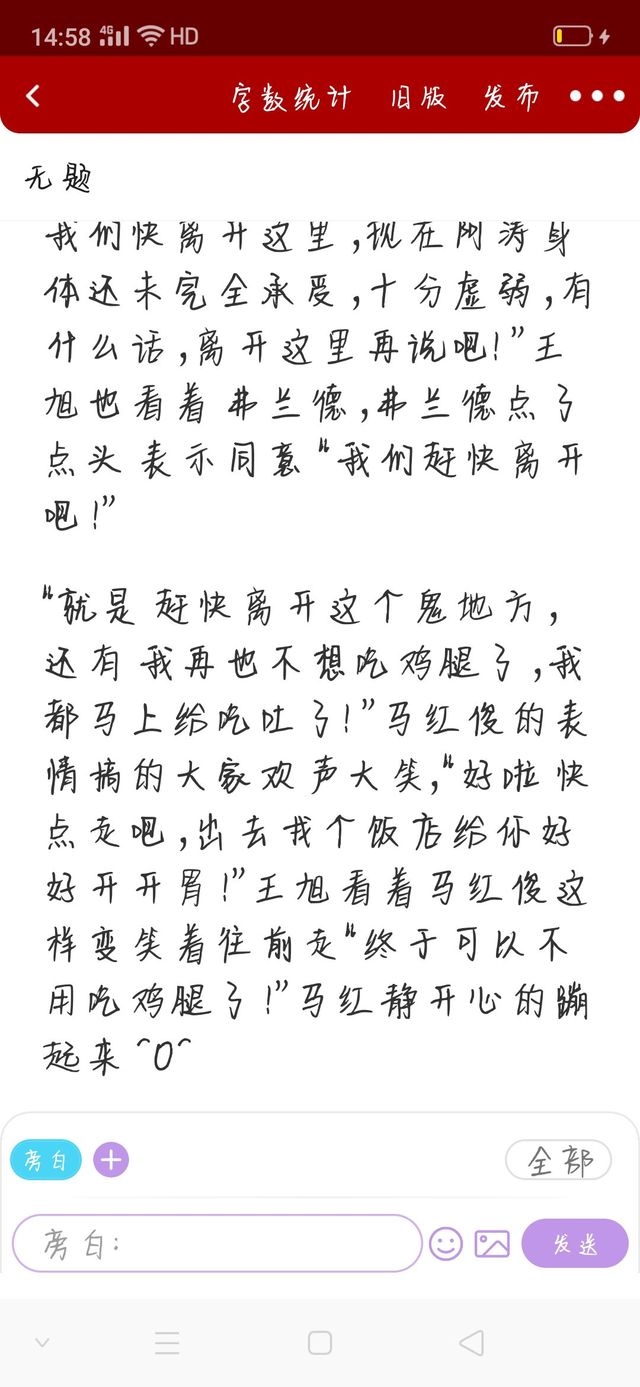 14:58 4G HD
字数统计 旧版 发布
无题
我们快离开这里,现在网涛身
体还未完全承受,十分虚弱,有
什么话,离开这里再说吧!”王
旭也看着弗兰德,弗兰德点了
点头表示同意“我们赶快离开
吧!”
“就是赶快离开这个鬼地方,
还有我再也不想吃鸡腿了,我
都马上给吃吐了!”马红俊的表
情搞的大家欢声大笑,“好啦快
点走吧,出去找个饭店给你好
好开开胃!”王旭看着马红俊这
样变笑着往前走“终于可以不
用吃鸡腿了!”马红静开心的蹦
起来^O^
旁白 全部
旁白: 发送